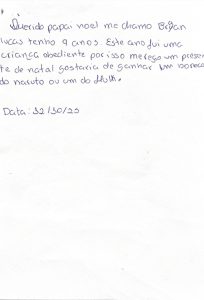 Querido papai noel me chamo Bryan
lucas tenho 9 anos. Este ano fui uma
criança obediente por isso mereço um presen
te de natal gostaria de ganhar um boneco
do naruto ou um do
Data: